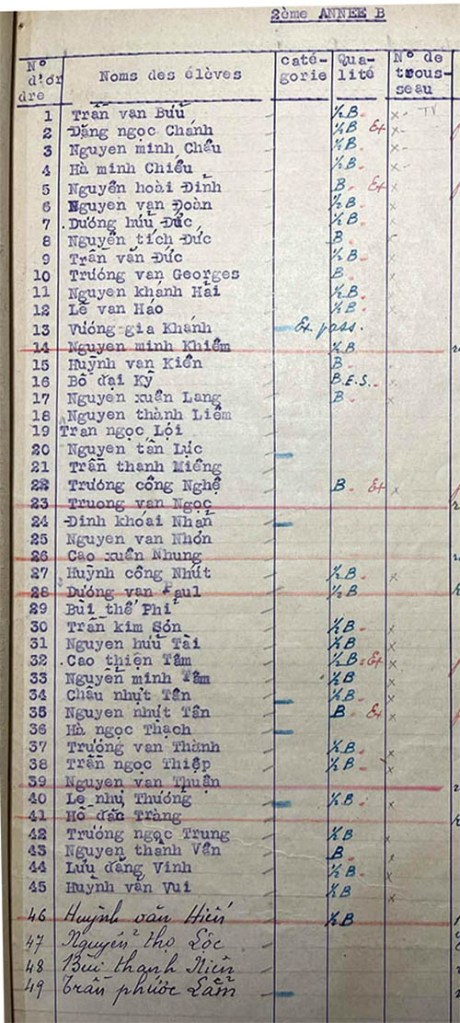 2ème ANNEE B
N° d'or dre Noms des élèves caté- gorie Qua- lité N° de trous- seau
1 Trần van Bửu ½B. x- TV
2 Đặng ngọc Chánh ½B Ex x-
3 Nguyen minh Châu ½B. x-
4 Hà minh Chiếu ½B. x-
5 Nguyễn hoài Đĩnh B. Ex x
6 Nguyen van Đoàn ½B. x
7 Dương hữu Đức ½B. x
8 Nguyễn tích Đức B. x
9 Trần văn Đức ½B. x
10 Trương van Georges B. x
11 Nguyen khánh Hải ½B. x
12 Lê van Hảo ½B. x
13 Vương gia Khánh Ex pass.
14 Nguyen minh Khiêm ½B
15 Huỳnh van Kiển B.
16 Bồ đại Kỳ B.E.S.
17 Nguyen xuân Lang B. x
18 Nguyen thành Liêm
19 Tran ngọc Lợi
20 Nguyen tấn Lực
21 Trần thanh Miêng
22 Trương công Nghệ B. Ex x
23 Truong van Ngọc
24 Đinh khoái Nhẫn
25 Nguyen van Nhơn
26 Cao xuân Nhung
27 Huỳnh công Nhứt ½B. x
28 Dương van Paul ½B
29 Bùi thế Phi
30 Trần kim Sơn ½B. x
31 Nguyen hữu Tài ½B x
32 Cao thiện Tâm ½B. Ex x
33 Nguyen minh Tâm ½B x
34 Châu nhựt Tân ½B. x
35 Nguyen nhựt Tân B Ex x
36 Hà ngọc Thạch
37 Trương van Thành ½B. x
38 Trần ngọc Thiệp ½B. x
39 Nguyen van Thuận
40 Le như Thương ½B. x
41 Hồ đắc Tràng
42 Trương ngọc Trung ½B x
43 Nguyen thành Vấn B. x
44 Lưu đăng Vinh ½B. x
45 Huynh văn Vui ½B x
46 Huỳnh văn Hiến ½B
47 Nguyễn thọ Lộc
48 Bùi thanh Kiển
49 Trần phước Lắm